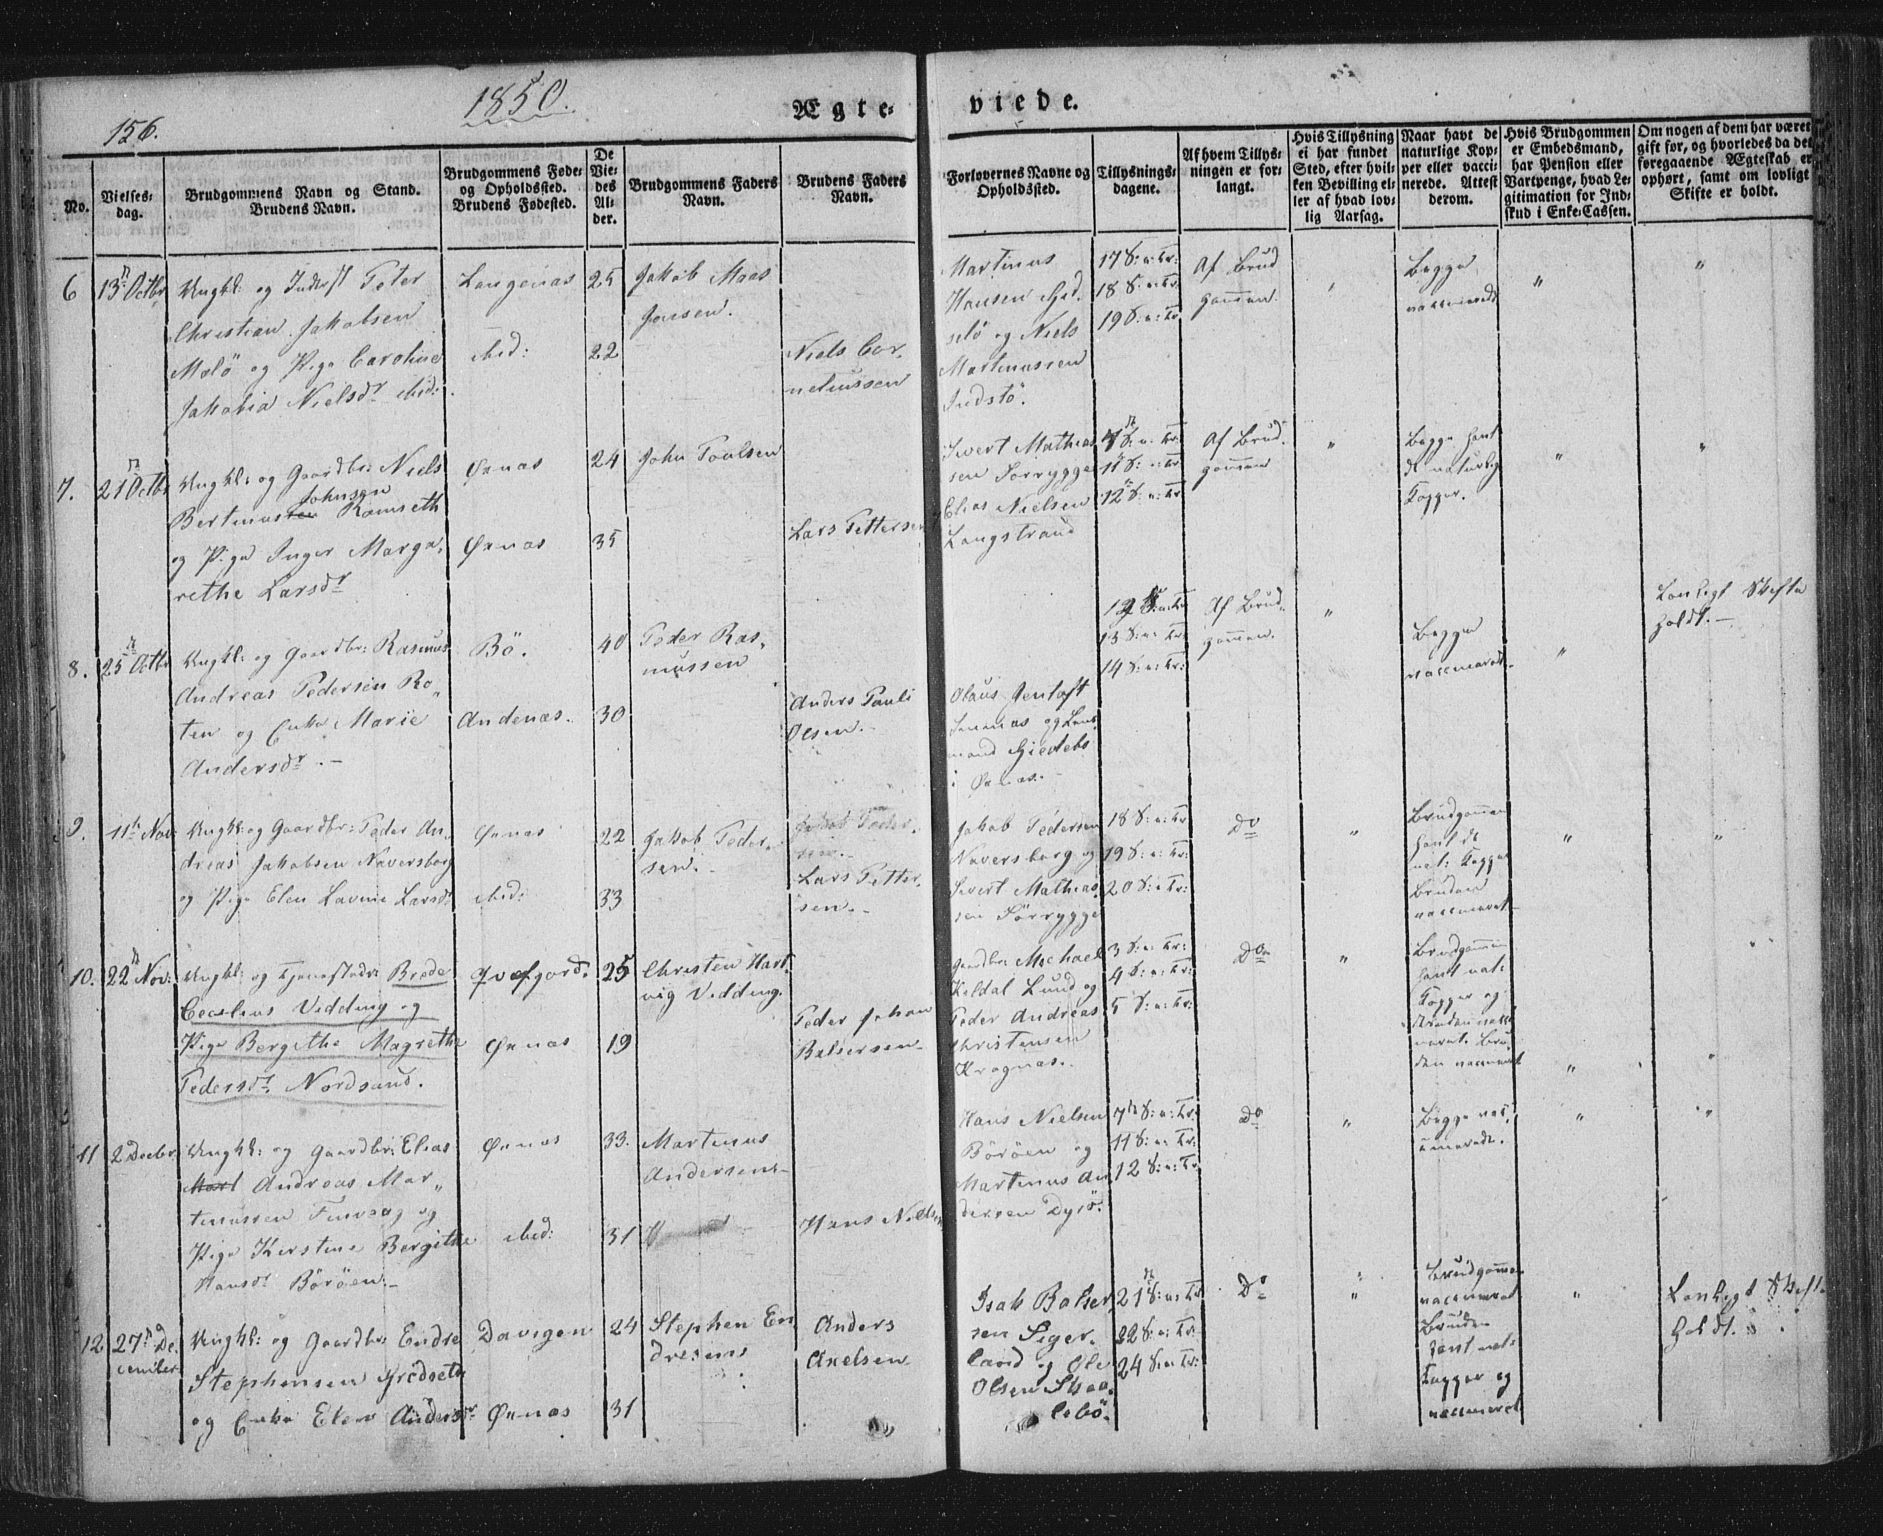 156.
1850.
Ægteviede.
No.
Vielsesdag.
Brudgommens Navn og Stand.
Brudens Navn.
Brudgommens Føde-
og Opholdssted.
Brudens Fødested.
De
Viedes
Alder.
Brudgommens Faders
Navn.
Brudens Faders
Navn.
Forlovernes Navne og
Opholdssted.
Tillysnings-
dagene.
Af hvem Tillys-
ningen er for-
langt.
Hvis Tillysning
ei har fundet
Sted, efter hvil-
ken Bevilling el-
ler af hvad lov-
lig Aarsag.
Naar havt de
naturlige Kop-
per eller vacci-
nerede. Attest
derom.
Hvis Brudgommen
er Embedsmand,
har Pension eller
Vartpenge, hvad Le-
gitimation for Ind-
skud i Enke-Cassen.
Om nogen af dem har været
gift før, og hvorledes da det
foregaaende Ægteskab er
ophørt, samt om lovligt
Skifte er holdt.
6
13 Octbr
Ungkl: og Inderst Peter
Christian Jakobsen
Malö og Pige Caroline
Jakobia Nielsdr ibid:
Langenas
ibid:
25
22
Jakob Maas
Jonsen.
Niels Cor-
neliussen
Martinus
Hansen
og Niels
Martinussen
Indstö.
17 S: e: Tr:
18 S: e: Tr:
19 S: e: Tr:
Af Brud
gommen.
Begge
vaccinerede
7.
21 Octbr
Ungkl: og Gaardbr: Niels
Johnsen
Bertinus Ramseth
og Pige Inger Marga-
rethe Larsdr
Øxnas
Øxnas
24
35
John Poulsen
Lars Pettersen
Sivert Mathias
sen Sörrygge
Elias Nielsen
Langstrand
11 S: e: Tr:
12 S: e: Tr:
Af Brud-
gommen
Begge havt
de naturlig
Kopper.
8.
25 Octbr
Ungkl: og Gaardbr: Rasmus
Andreas Pedersen Ro-
ten og Enke Marie
Andersdr. -
Bö.
Andenas.
40
30
Peder Ras-
mussen
Anders Pauli
Olsen. -
Olaus Jentoft
og Lens
mand
i
13 S: e: Tr:
14 S: e: Tr:
Af Brud-
gommen.
Begge
vaccinerede.
Lovligt Skifte
holdt. -
9.
11te Nov:
Ungkl: og Gaardbr: Peder An-
dreas Jakobsen Naversborg
og Pige Elen Lavine Larsdr
Øxnas
ibid:
22
33
Jakob Peder-
sen. -
Lars Petter-
sen. -
Jakob Pedersen
Naversborg og
Sivert Mathias
sen Sörrygge
18 S: e: Tr
19 S: e: Tr:
20 S: e Tr:
Do
Brudgommen
havt de
nat: Kopper
Bruden
vaccineret
10.
22 Nov:
Ungkl: og Brede
Cecelius Vedding og
Pige Bergithe Magrethe
Pedersdr Nordsand.
Qvæfjord.
Øxnas
25
19
Christen Hart-
vig Vedding.
Peder Johan
Balsersen
Gaardbr: Michael
Keldal Lund og
Peder Andreas
Christensen
Kragnas.
3 S: e: Tr:
4 S: e: Tr:
5 S: e: Tr:
Do
Brudgommen
havt nat:
Kopper og
Bru
den vaccineret
11
2 Decbr
Ungkl: og Gaardbr: Elias
Andreas Mar-
tinussen Finvaag og
Pige Kirstine Bergithe
Hansdr Böröen. -
Øxnas
ibid:
33.
31
Martinus
Andersen. -
Hans Nielsen
Hans Nielsen
Böröen og
Martinus An
dersen Dyrö.
7de S: e: Tr:
11 S: e: Tr:
12 S: e: Tr:
Do
Begge vac-
cinerede.
12
27de De
cember
Ungkl: og Gaardbr: Endre
Stephensen
og Enke Elen Andersdr
Davigen
Øxnas
24
31
Stephen En
dresens
Anders
Axelsen
Isak Balser
sen Siger-
land og Ole
Olsen Skaa-
lebö.
21 S: e: Tr
22 S: e: Tr:
24 S: e: Tr:
Do
Brudgommen
vaccineret
Bruden
havt nat:
Kopper og
vaccineret
Lovligt Skifte
holdt.